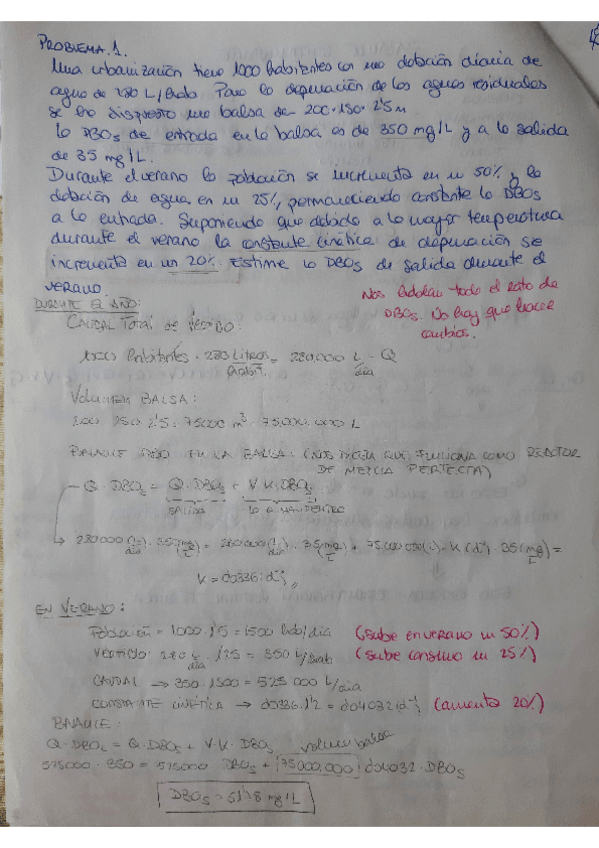 PROBLEMA.1.
Una urbanización tiene 1000 habitantes con una dotación diaria de
agua de 280 L/hab. Para la depuración de las aguas residuales
se ha dispuesto una balsa de 200·150·2'5 m
la DBO5 de entrada en la balsa es de 350 mg/L y a la salida
de 35 mg/L.
Durante el verano la población se incrementa en un 50% y la
dotación de agua en un 25%, permaneciendo constante la DBO5
a la entrada. Suponiendo que debido a la mayor temperatura
durante el verano la constante cinética de depuración se
incrementa en un 20%. Estime la DBO5 de salida durante el
verano.
Nos hablan todo el rato de
DBO5. No hay que hacer
cambios.
DURANTE EL AÑO:
CAUDAL Total de vertido:
1000 habitantes · 280 Litros/habit. = 280.000 L/día = Q
Volumen BALSA:
200·150·2'5 = 75000 m³ = 75.000.000 L
BALANCE DBO EN LA BALSA: (NOS DICEN QUE FUNCIONA COMO REACTOR
DE MEZCLA PERFECTA)
Q · DBO5 = Q · DBO5 + V·K·DBO5
SALIDA
280000 (L/día) · 35 (mg/L) = 280000 (L/día) · 35 (mg/L) + 75.000.000 (L) · K (d⁻¹) · 35 (mg/L) =
K = 0'0336 (d⁻¹)
EN VERANO:
Población = 1000·1'5 = 1500 hab/día (sube en verano un 50%)
VERTIDO: 280 L/día · 1'25 = 350 L/hab (sube consumo un 25%)
CAUDAL → 350·1500 = 525000 L/día
CONSTANTE CINÉTICA → 0'0336·1'2 = 0'04032 (d⁻¹) (aumenta 20%)
BALANCE:
Q·DBO5 = Q·DBO5 + V·K·DBO5 volumen balsa
525000·350 = 525000 DBO5 + (75000.000) 0'04032·DBO5
DBO5 = 51'8 mg/L